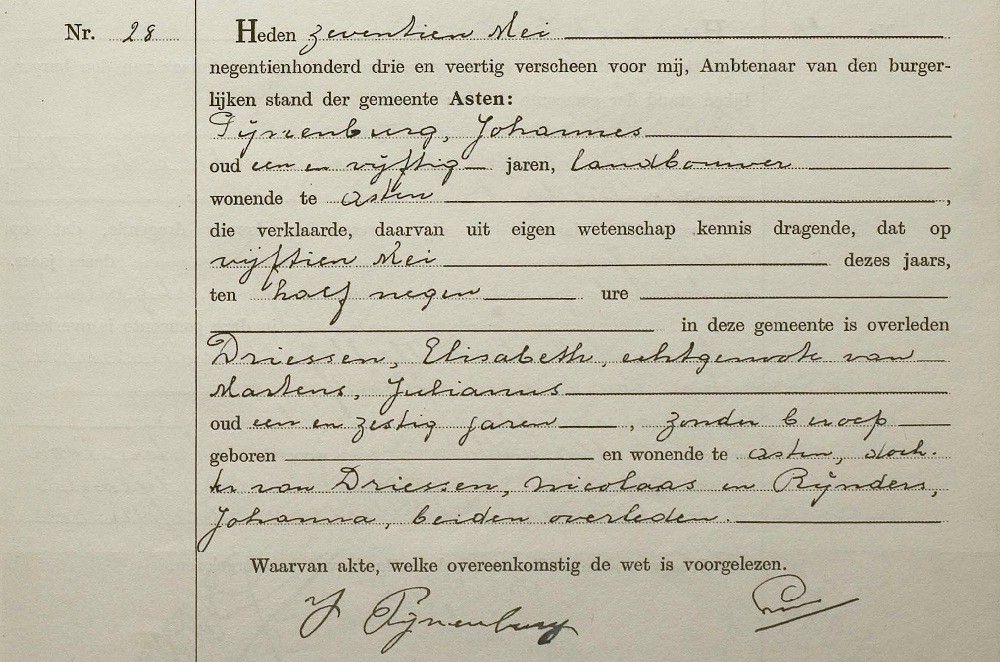 Nr. 28
Heden zeventien Mei
negentienhonderd drie en veertig verscheen voor mij, Ambtenaar van den burger-
lijken stand der gemeente Asten:
Pijnenburg, Johannes
oud een en vijftig jaren, landbouwer
wonende te Asten,
die verklaarde, daarvan uit eigen wetenschap kennis dragende, dat op
vijftien Mei dezes jaars,
ten half negen ure
in deze gemeente is overleden
Driessen, Elisabeth, echtgenoote van
Martens, Julianus
oud een en zestig jaren, zonder beroep
geboren en wonende te Asten, doch-
ter van Driessen, Nicolaas en Rijnders,
Johanna, beiden overleden.
Waarvan akte, welke overeenkomstig de wet is voorgelezen.
J Pijnenburg